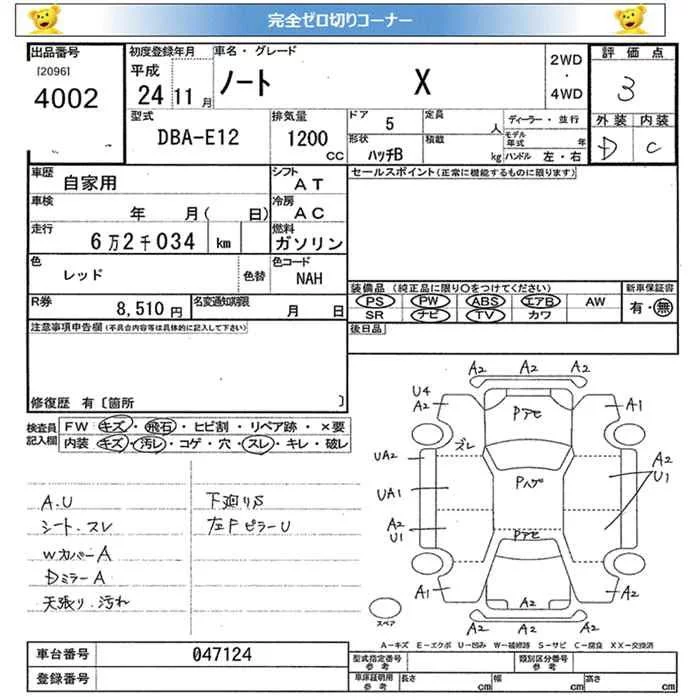 完全ゼロ切りコーナー
出品番号 初度登録年月 車名・グレード 2WD・4WD 評価点
[2096] 平成 ノート X 3
4002 24 11月
型式 排気量 ドア 5 定員 人 ディーラー・並行 外装 内装
DBA-E12 1200 CC 形状 ハッチB 積載 kg モデル年式 年 D C
ハンドル 左・右
車歴 自家用 シフト AT セールスポイント(正常に機能するものに限ります)
車検 年 月( 日) 冷房 AC
走行 6万2千034 km 燃料 ガソリン
色 レッド 色替 色コード NAH
装備品(純正品に限り○をつけてください) 新車保証書
PS PW ABS エアB AW 有・無
SR ナビ TV カワ
R券 8,510円 名変通知期限 月 日
後日品
注意事項申告欄(不具合内容等は具体的に記入して下さい)
修復歴 有〔箇所 〕
検査員記入欄 FW キズ・飛石・ヒビ割・リペア跡・×要
内装 キズ・汚レ・コゲ・穴・スレ・キレ・破レ
A.U 下廻りS
シート.スレ 左Fピラー U
Wカバー A
Dミラー A
天張り.汚れ
A2 A2 A2
U4
A2 Pアセ A1
ズレ
UA2 A2
U1
UA1 Pハゲ
A2
U1 Pアセ
A1 A2 A2
スペア A2 A2 A2
A-キズ E-エクボ U-凹み W-補修跡 S-サビ C-腐食 XX-交換済
車台番号 047124 型式指定番号 参考 類別区分番号 参考
登録番号 車庫証明用 参考 長さ cm 幅 cm 高さ cm